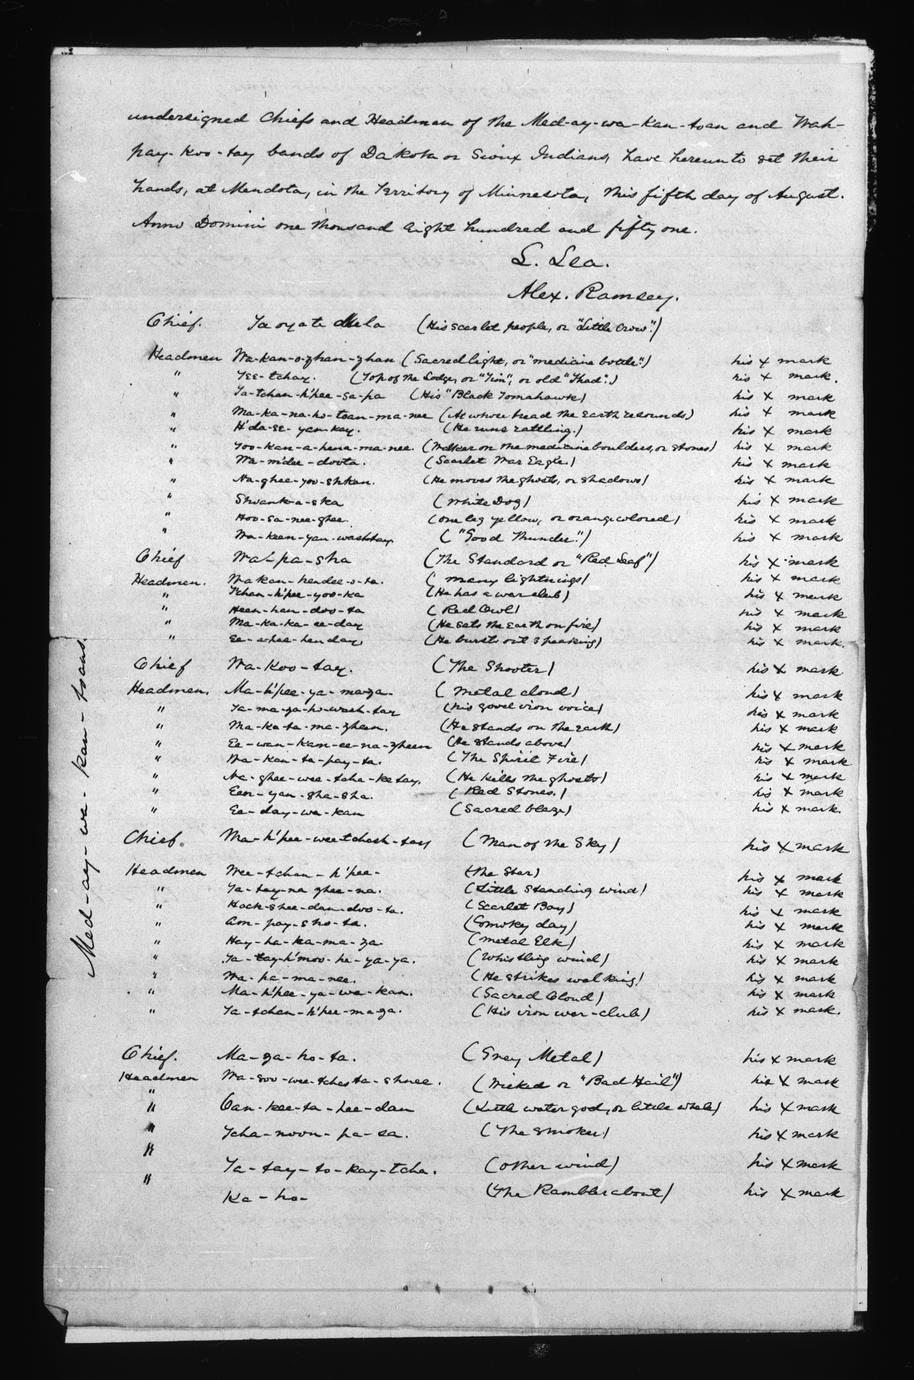 undersigned Chiefs and Headmen of the Med-ay-wa-kan-toan and Wah-
pay-koo-tay bands of Dakota or Sioux Indians, have hereunto set their
hands, at Mendota, in the Territory of Minnesota, this fifth day of August.
Anno Domini one thousand eight hundred and fifty one.
L. Lea.
Alex. Ramsey.
Chief. Ta oya te duta (His scarlet people, or "Little Crow")
Headmen Wa-kan-o-zhan-zhan (Sacred light, or "medicine bottle".) his X mark
" Tee-tchay. (Top of the Lodge, or "Jim", or old "Thad".) his X mark.
" Ta-tchan-h'pee-sa-pa (His "Black Tomahawk) his X mark
" Ma-ka-na-ho-toan-ma-nee (At whose tread the Earth resounds) his X mark
" H'da-ee-yan-kay. (He runs rattling.) his X mark
" Too-kan-a-hena-ma-nee. (Walker on the medicine boulders, or stones) his X mark
" Wa-m'dee-doota. (Scarlet War Eagle.) his X mark
" Na-ghee-yoo-shkan. (He moves the ghosts, or shadows) his X mark
" Shwank-a-ska (White Dog) his X mark
" Hoo-sa-nee-ghee. (one leg yellow, or orange colored) his X mark
" Wa-keen-yan-washtay ("Good Thunder".) his X mark
Chief Wa-pa-sha (The Standard or "Red Leaf") his X mark
Headmen. Wakan-hendee-o-ta. (many lightnings) his X mark
" Tchan-h'pee-yoo-ka (He has a war club) his X mark
" Heen-han-doo-ta (Red Owl) his X mark
" Ma-ka-ka-ee-day (He sets the Earth on fire) his X mark
" Ee-a-hee-hen day (He bursts out speaking) his X mark.
Chief Wa-koo-tay. (The Shooter) his X mark
Headmen. Ma-h'pee-ya-ma-za- (metal cloud) his X mark
" Ta-ma-za-ho-wash-tay (his good iron voice) his X mark
" Ma-ka-ta-ma-zheen. (He stands on the earth) his X mark
" Ee-wan-kam-ee-na-zheen (He stands above) his X mark
" Wa-kan-ta-pay-ta. (The Spirit Fire) his X mark
" Na-ghee-wee-tcha-ketay. (He kills the ghosts) his X mark
" Een-yan-sha-sha. (Red Stones.) his X mark
" Ee-day-wa-kan (Sacred blaze) his X mark.
Chief. Ma-h'pee-wee-tchash-tay (Man of the Sky) his X mark
Headmen Wee-tchan-h'pee- (the Star) his X mark
" Ta-tay-na zhee-na. (Little standing wind) his X mark
" Hock-shee-dan-doo-ta. (Scarlet Boy) his X mark
" Am-pay-sho-ta. (Smoky day) his X mark
" Hay-ha-ka-ma-za (metal Elk) his X mark
" Ta-tay-h'moo-he-ya-ya. (Whistling wind) his X mark
" Wa-pa-ma-nee. (He strikes walking) his X mark
" Ma-h'pee-ya-wa-kan. (Sacred Cloud) his X mark
" Ta-tchan-h'pee-ma-za. (His iron war-club) his X mark.
Chief. Ma-za-ho-ta. (Grey Metal) his X mark
Headmen Wa-soo-wee-tchasta-shnee. (Wicked or "Bad Hail") his X mark
" Oan-ktee-ta-hee-dan (Little water god, or little whale) his X mark
" Tcha-noon-pa-sa. (The smoker) his X mark
" Ta-tay-to-kay-tcha. (other wind) his X mark
" Ka-ho- (the Rambler about) his X mark
Med-ay-wa-kan-toans.